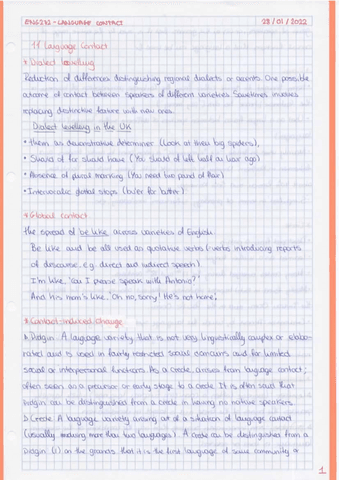 ENG242 - LANGUAGE CONTACT 28/01/2022
1) Language Contact
* Dialect levelling
Reduction of differences distinguishing regional dialects or accents. One possible
outcome of contact between speakers of different varieties. Sometimes involves
replacing distinctive feature with new ones.
Dialect levelling in the UK
• them as demonstrative determiner (Look at them big spiders),
• Should of for should have (You should of left half an hour ago)
• Absence of plural marking (You need two pound of flour)
• Intervocalic glottal stops (bu'er for butter)
* Global contact
the spread of be like across varieties of English.
Be like and be all used as quotative verbs (verbs introducing reports
of discourse e.g. direct and indirect speech)
I'm like, "can I please speak with Antonio?"
And his mom's like, "Oh no, sorry! He's not home".
* Contact-induced change
A Pidgin: A language variety that is not very linguistically complex or elabo-
rated and is used in fairly restricted social domains and for limited
social or interpersonal functions. As a creole, arises from language contact;
often seen as a precursor or early stage to a creole. It is often said that
pidgin can be distinguished from a creole in having no native speakers.
B Creole: A language variety arising out of a situation of language contact
(usually involving more than two languages). A creole can be distinguished from a
Pidgin (1) on the grounds that it is the first language of some community or
1